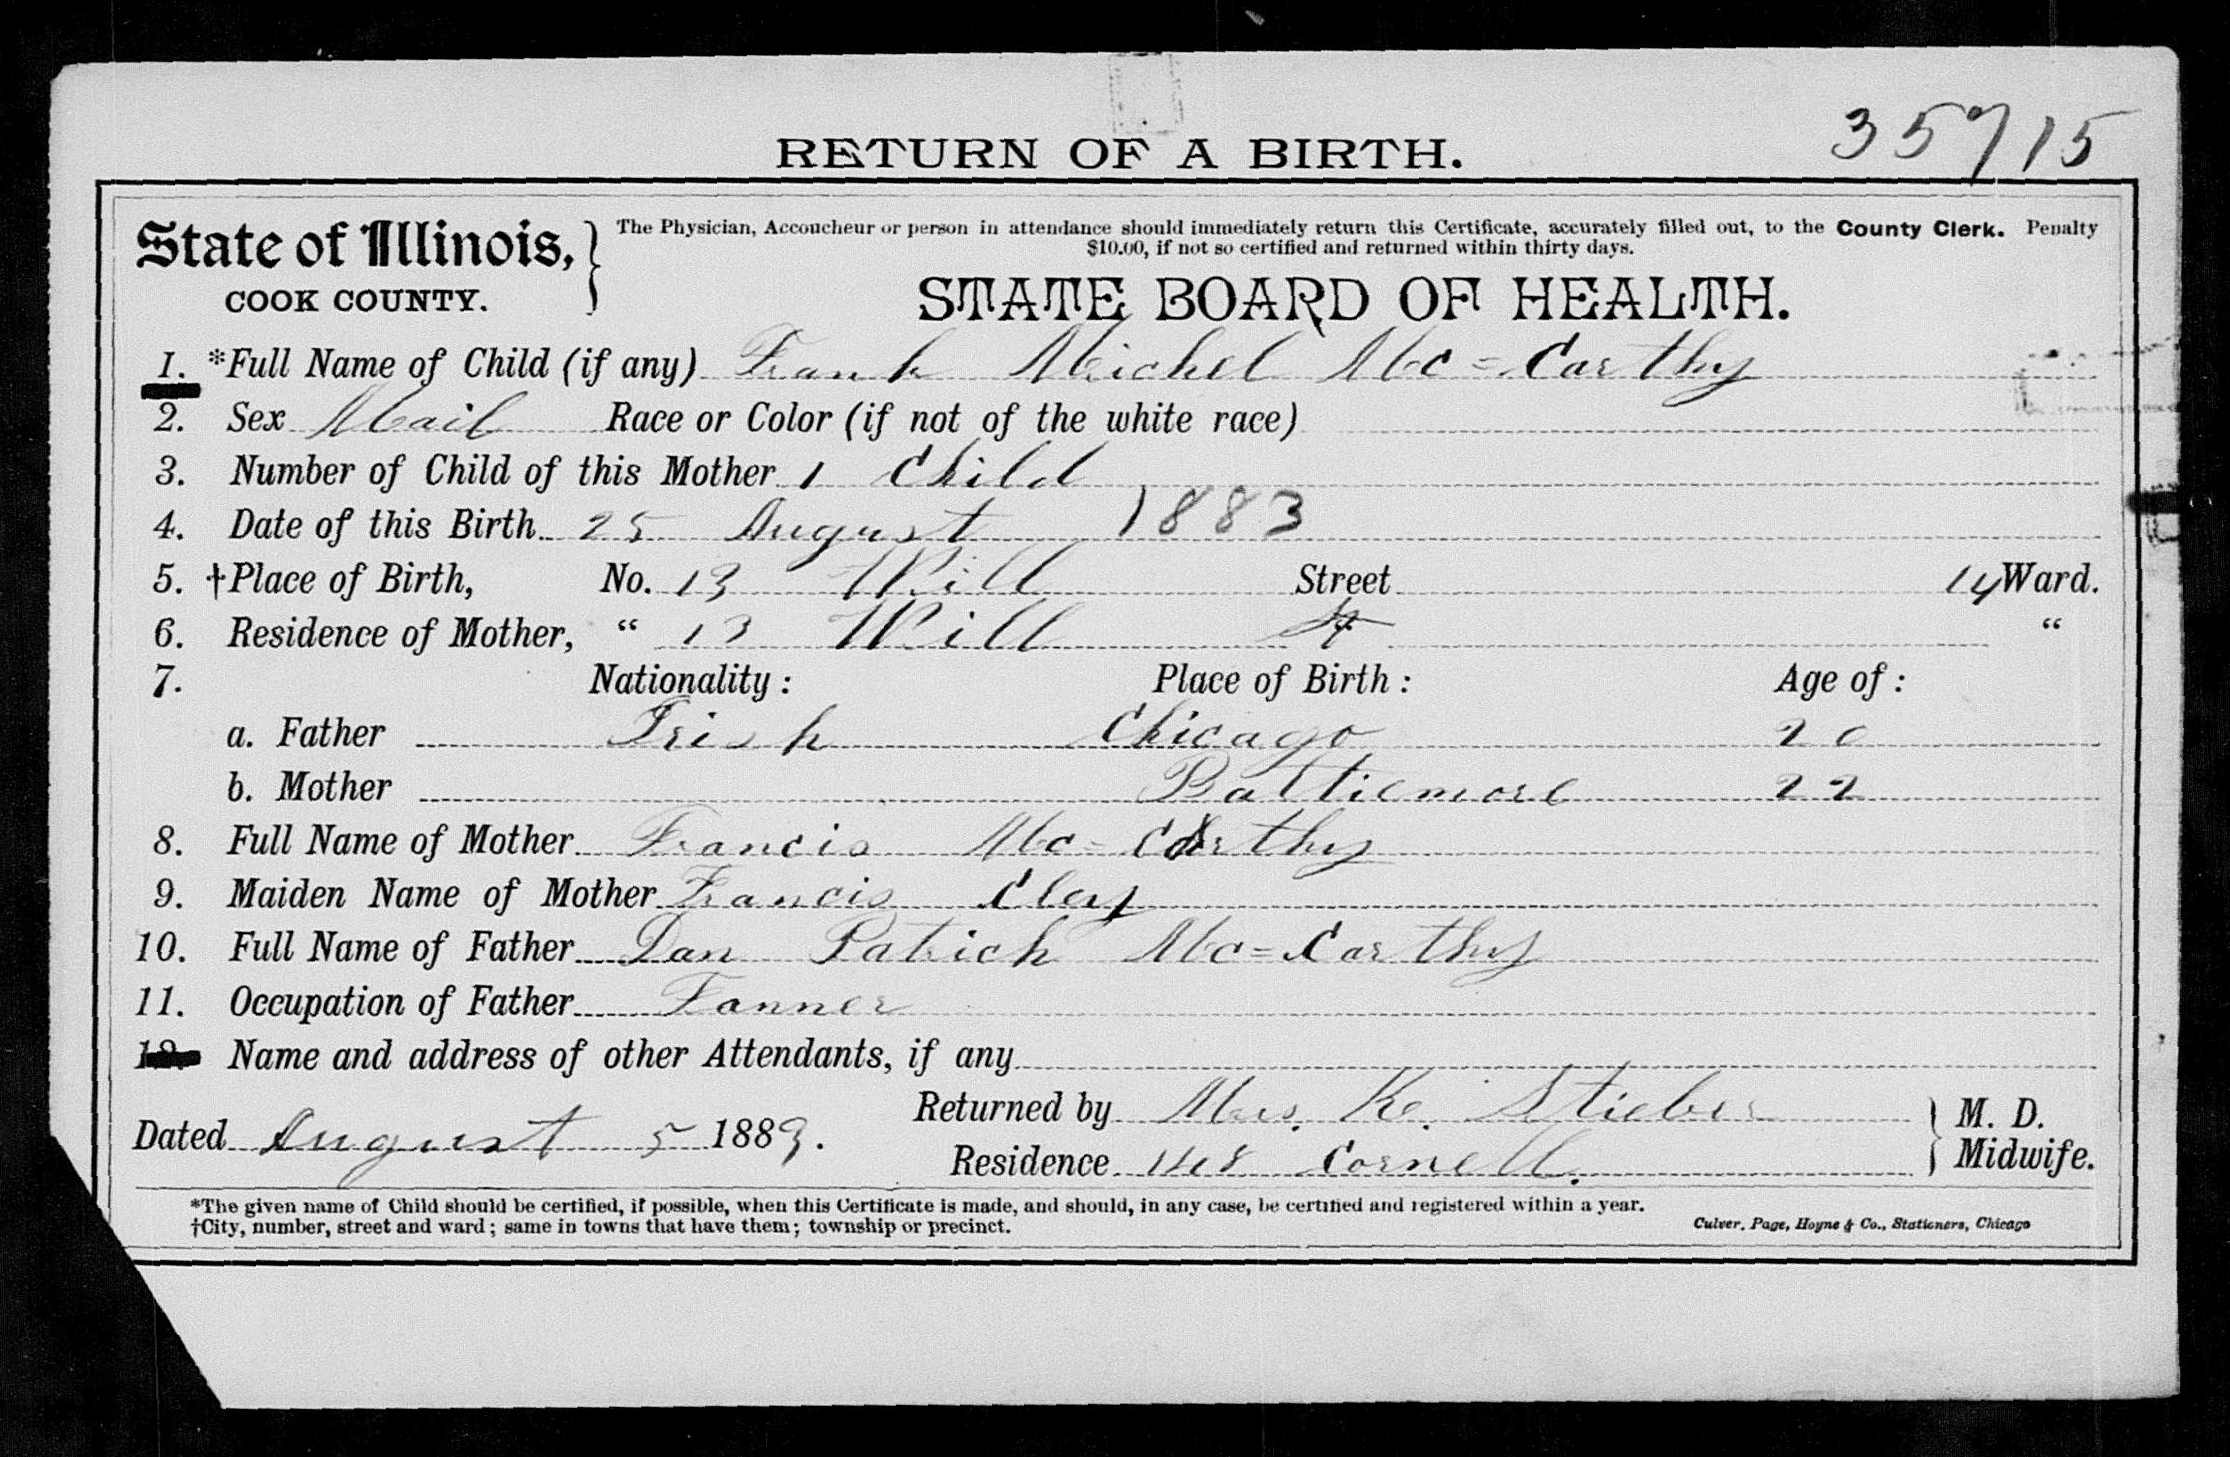 35715
RETURN OF A BIRTH.
State of Illinois,
COOK COUNTY.
The Physician, Accoucheur or person in attendance should immediately return this Certificate, accurately filled out, to the County Clerk. Penalty
$10.00, if not so certified and returned within thirty days.
STATE BOARD OF HEALTH.
1. *Full Name of Child (if any) Frank Michel Mc=Carthy
2. Sex Mail Race or Color (if not of the white race)
3. Number of Child of this Mother 1 Child
4. Date of this Birth 25 August 1883
5. †Place of Birth, No. 13 Will Street 14 Ward.
6. Residence of Mother, “ 13 Will St “
7. Nationality: Place of Birth: Age of:
a. Father Irish Chicago 20
b. Mother Baltiemore 22
8. Full Name of Mother Francis Mc=Carthy
9. Maiden Name of Mother Francis Cley
10. Full Name of Father Dan Patrick Mc=Carthy
11. Occupation of Father Tanner
12. Name and address of other Attendants, if any
Dated August 5 1883.
Returned by Mrs. K. Stieber } M. D.
Residence 148 Cornell. } Midwife.
*The given name of Child should be certified, if possible, when this Certificate is made, and should, in any case, be certified and registered within a year.
†City, number, street and ward; same in towns that have them; township or precinct.
Culver, Page, Hoyne & Co., Stationers, Chicago